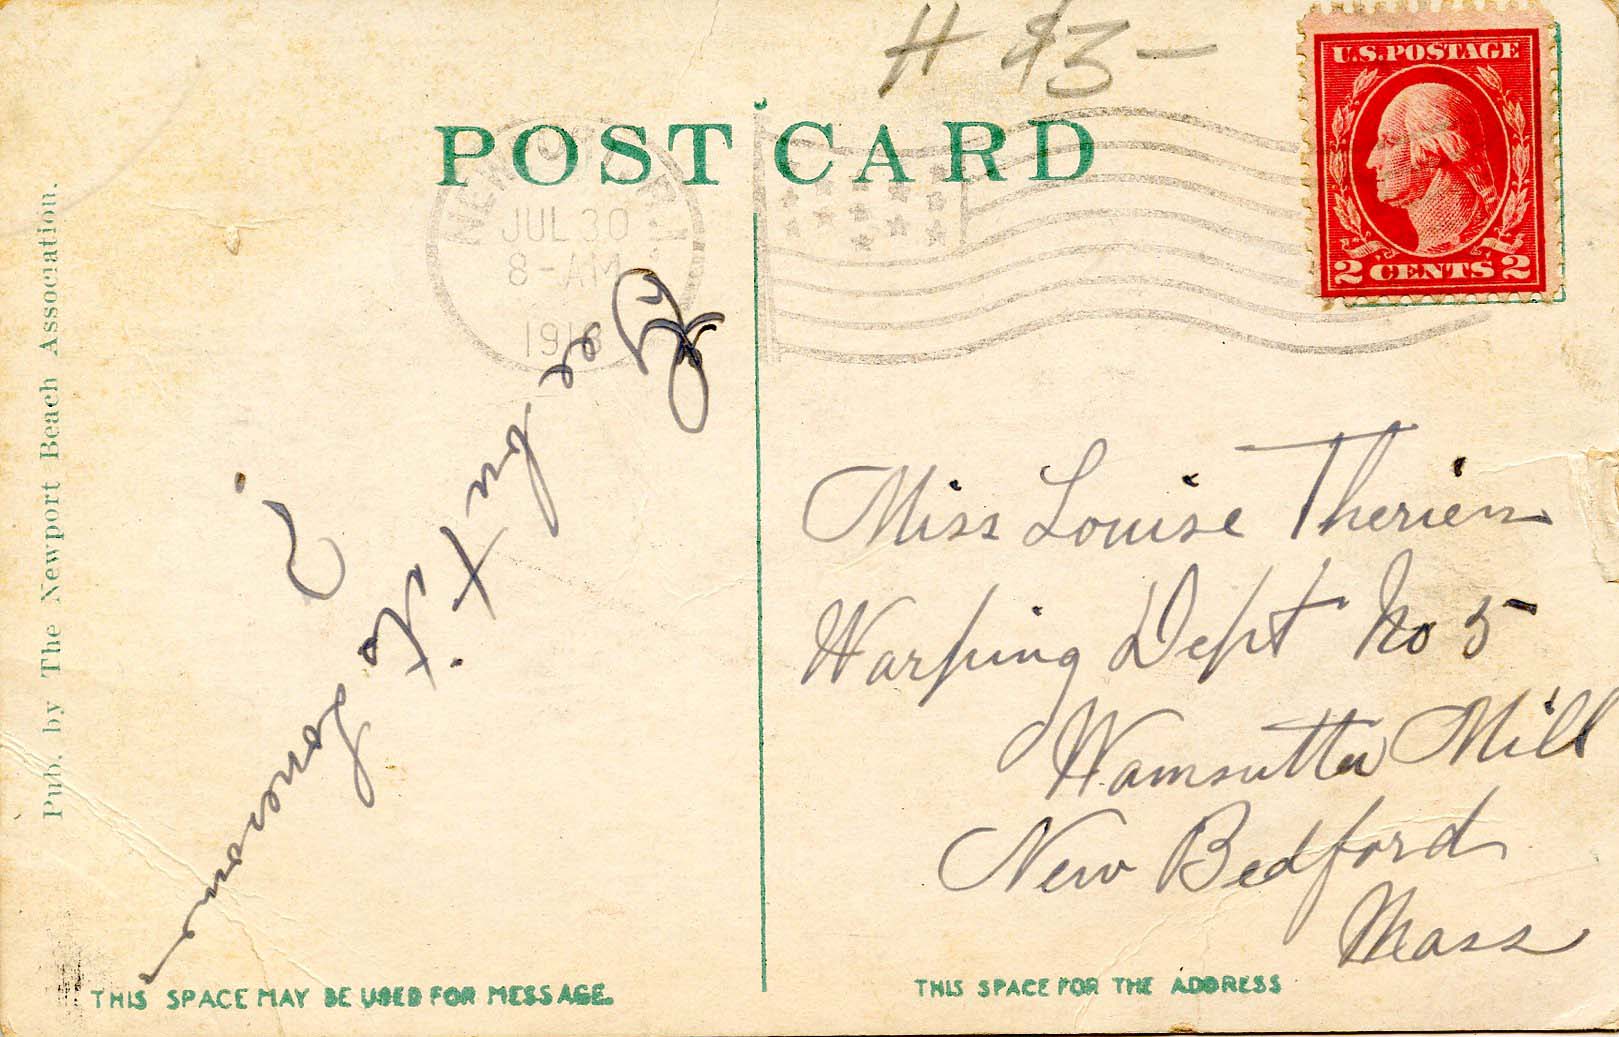 H $3–
U.S. POSTAGE
2 CENTS 2
POST CARD
JUL 30
8-AM
1918
Pub. by The Newport Beach Association.
Miss Louise Therien
Warping Dept No 5
Wamsutta Mill
New Bedford
Mass
THIS SPACE MAY BE USED FOR MESSAGE.
THIS SPACE FOR THE ADDRESS